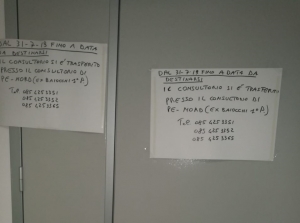 DAL 31-7-18 FINO A DATA
DA DESTINARSI
IL CONSULTORIO SI É TRASFERITO
PRESSO IL CONSULTORIO DI
PE-NORD (EX BAIOCCHI 1° P.)
Tel. 085 425 3251
085 425 3252
085 425 3253
DAL 31-7-18 FINO A DATA DA
DESTINARSI
IL CONSULTORIO SI É TRASFERITO
PRESSO IL CONSULTORIO DI
PE-NORD (EX BAIOCCHI 1° P.)
Tel. 085 425 3251
085 425 3252
085 425 3253